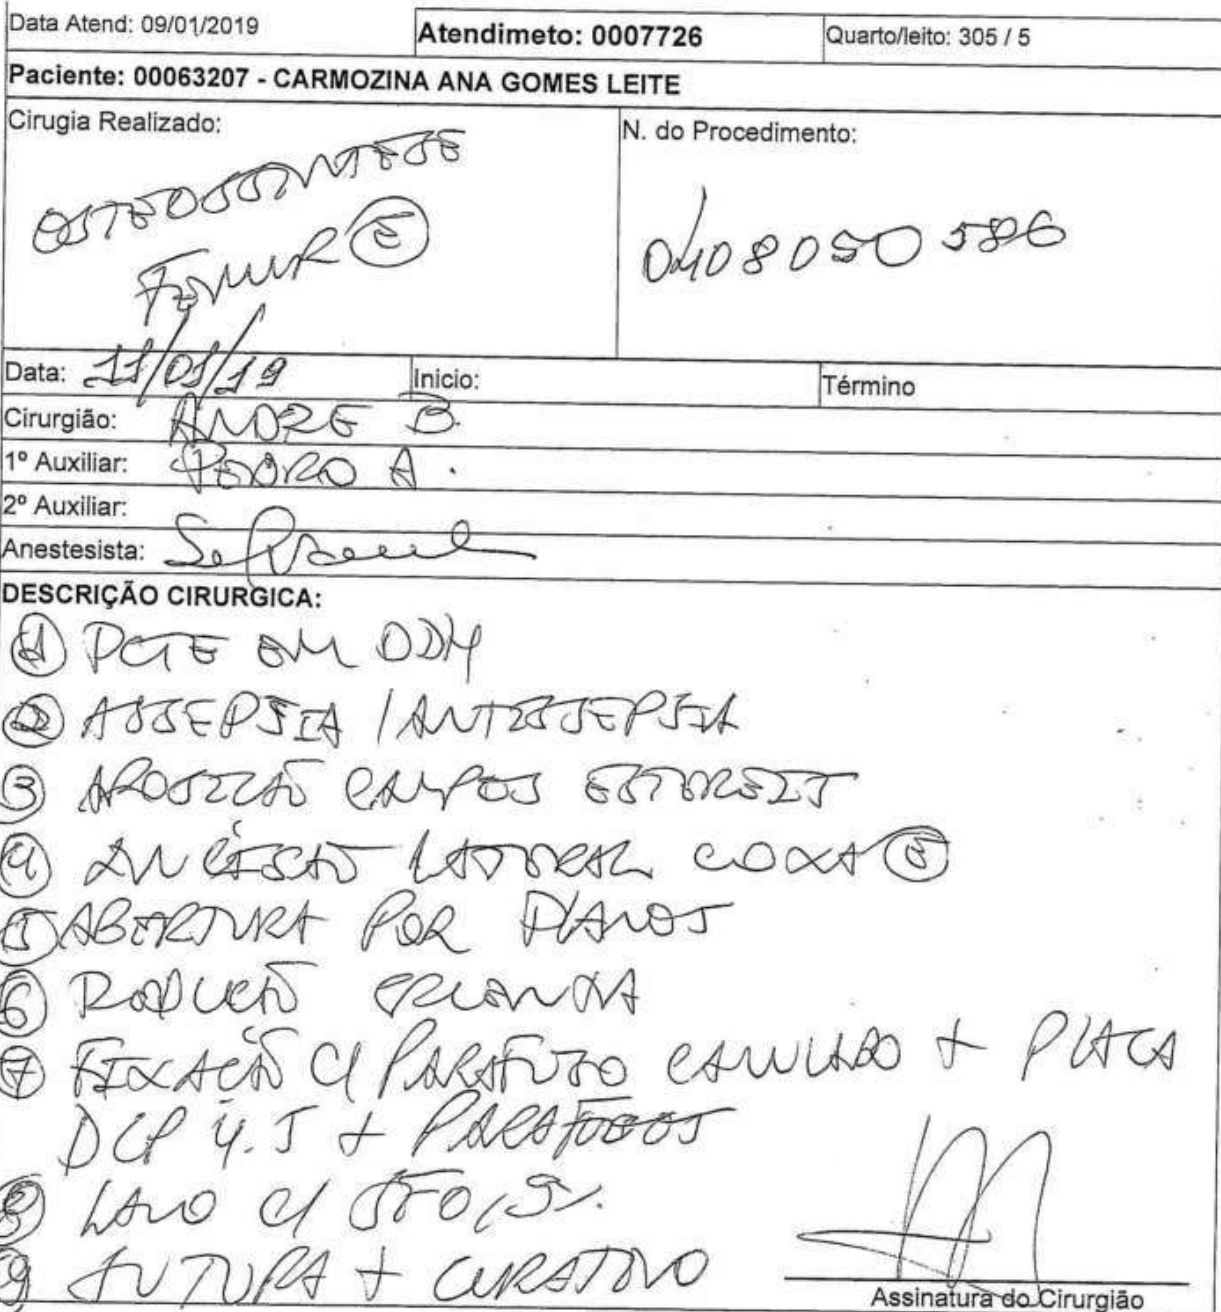 Data Atend: 09/01/2019 Atendimeto: 0007726 Quarto/leito: 305 / 5
Paciente: 00063207 - CARMOZINA ANA GOMES LEITE
Cirugia Realizado: N. do Procedimento:
OSTEOSSINTESE
FEMUR E
0408050586
Data: 11/01/19 Inicio: Término
Cirurgião: ANDRE B.
1º Auxiliar: PEDRO A.
2º Auxiliar:
Anestesista:
DESCRIÇÃO CIRURGICA:
1 PCTE EM DDH
2 ASSEPSIA / ANTISSEPSIA
3 APOSIÇÃO CAMPOS ESTEREIS
4 INCISÃO LATERAL COXA E
5 ABERTURA POR PLANOS
6 REDUÇÃO
7 FIXAÇÃO C/ PARAFUSO CANULADO + PLACA
DCP 4.5 + PARAFUSOS
8 LAVO C/ SF0,9%
9 SUTURA + CURATIVO
Assinatura do Cirurgião